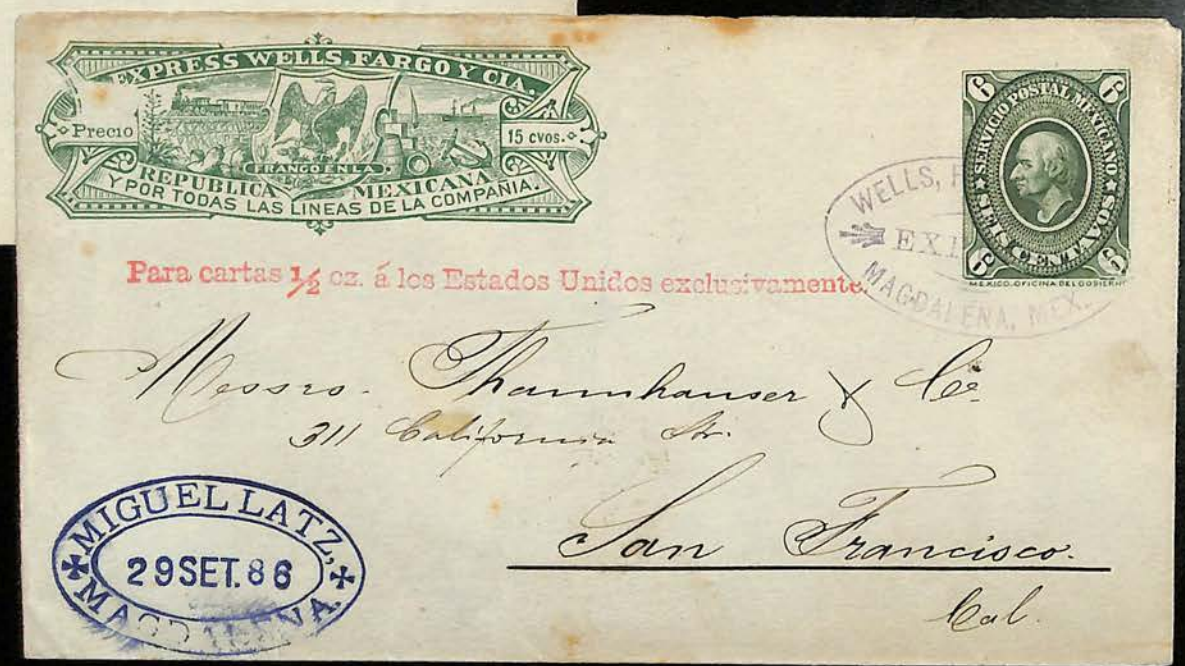 EXPRESS WELLS, FARGO Y CIA.
Precio 15 cvos.
FRANCO EN LA
REPUBLICA MEXICANA
Y POR TODAS LAS LINEAS DE LA COMPAÑIA.
6 6
SERVICIO POSTAL MEXICANO
SEIS CENTAVOS
6 6
MEXICO. OFICINA DEL GOBIERNO
WELLS,
MAGDALENA, MEX.
Para cartas ½ oz. á los Estados Unidos exclusivamente.
Messrs. Thannhauser & Co.
311 California Str.
San Francisco.
Cal.
MIGUEL LATZ,
29 SET. 86
MAGDALENA.